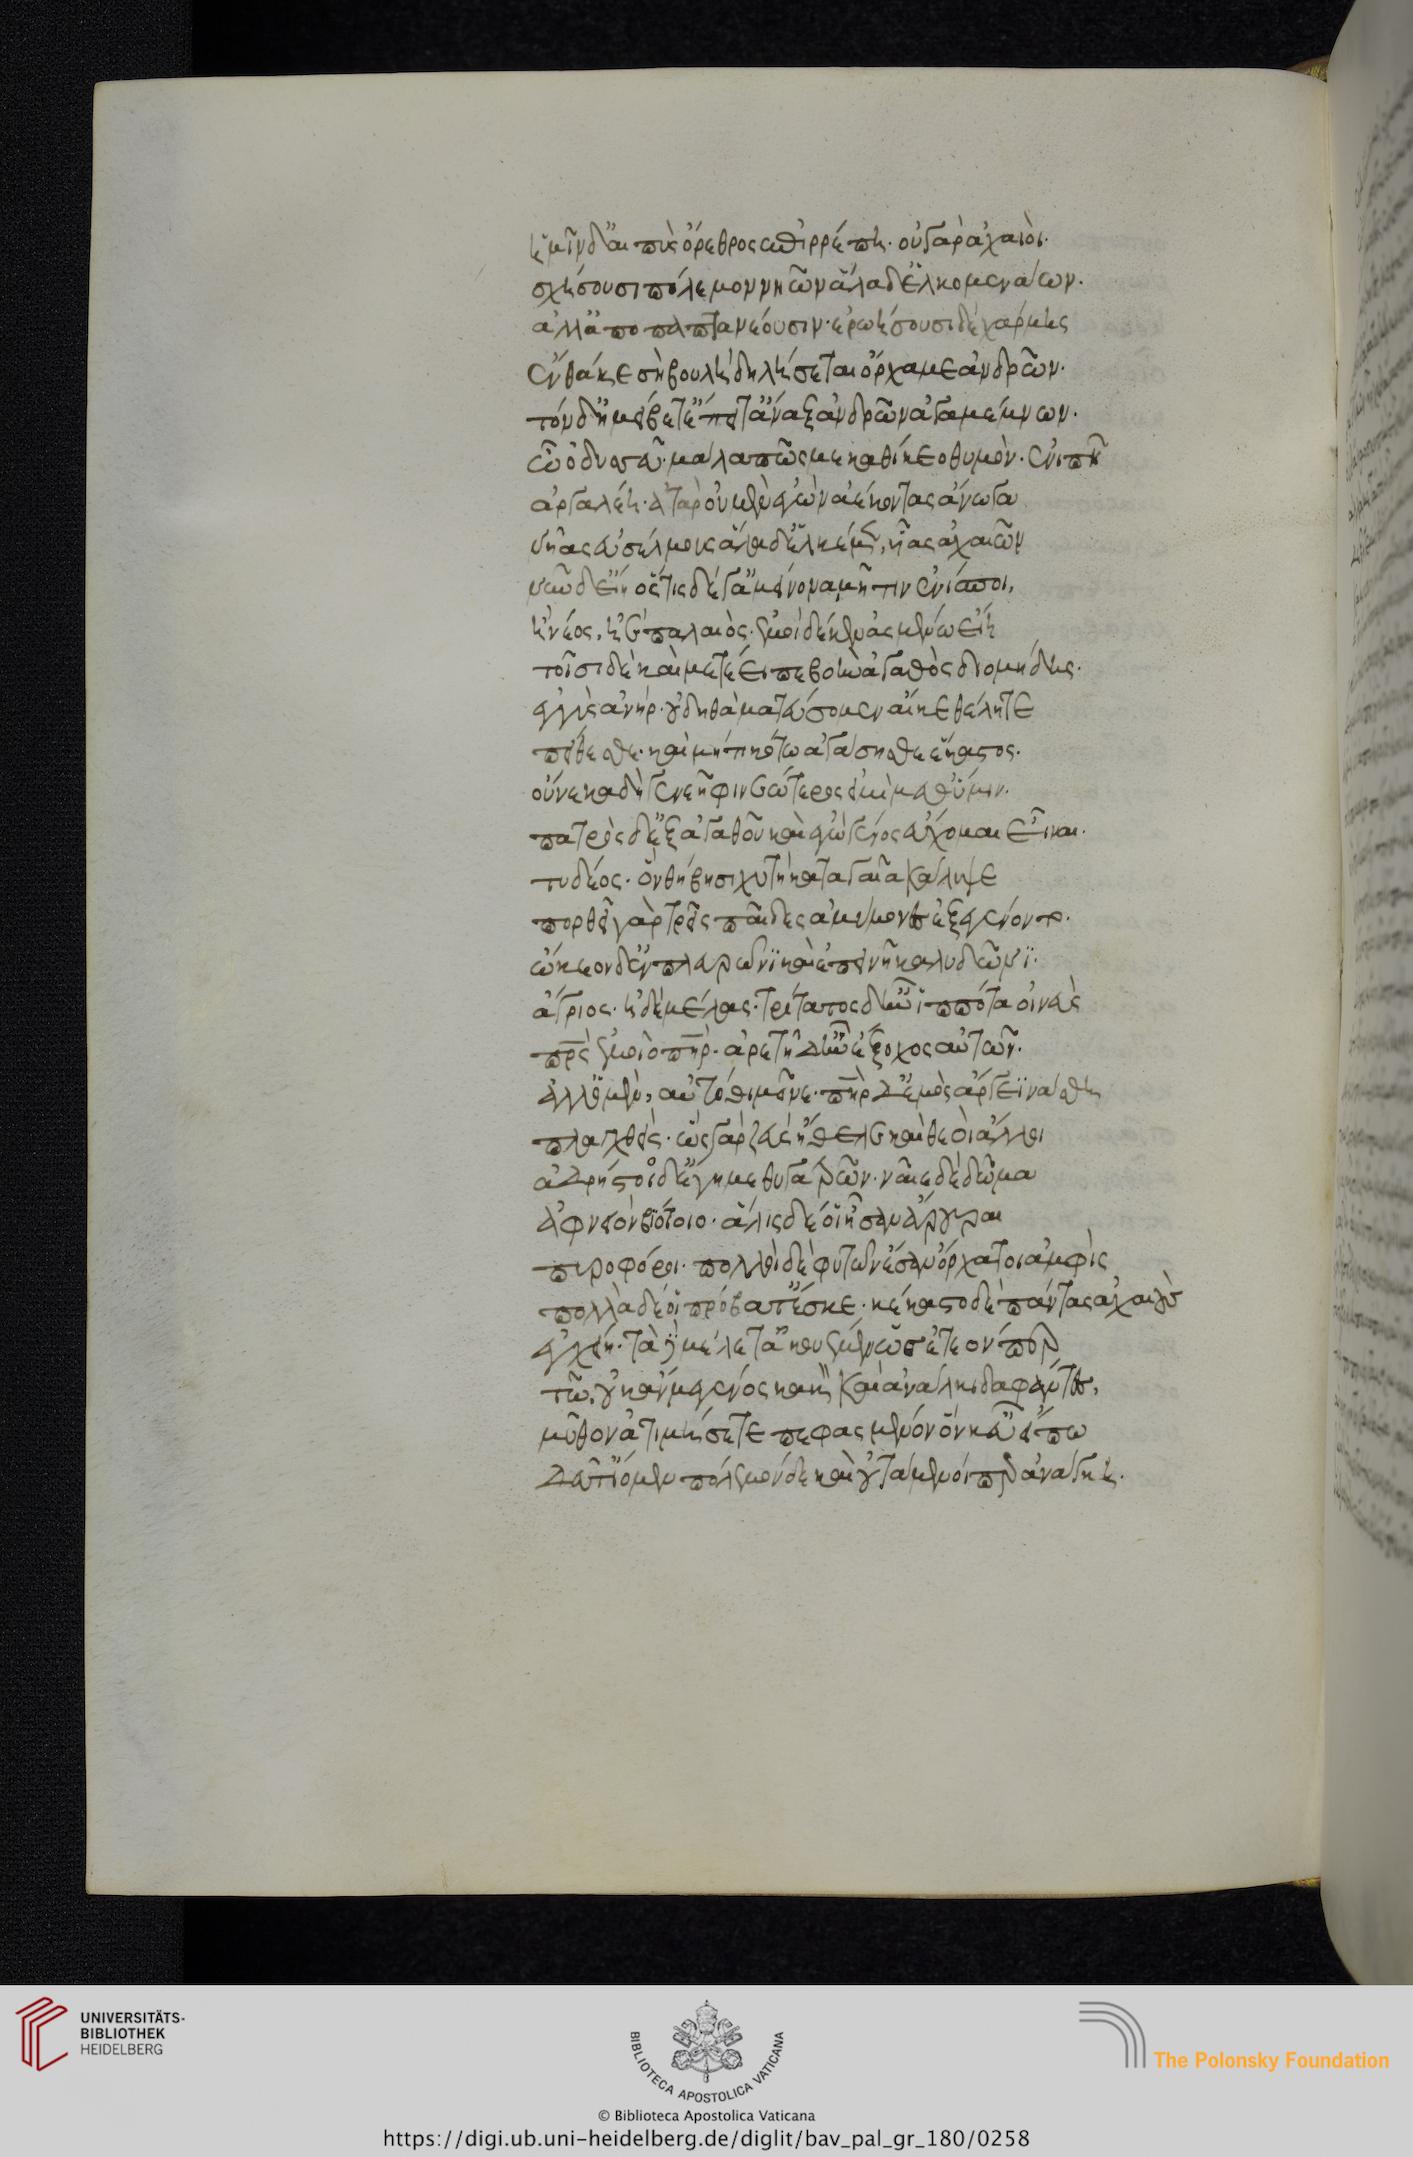 ἡμῖν δ' αἰπὺς ὄλεθρος ἐπιρρέπῃ· οὐ γὰρ ἀχαιοὶ·
σχήσουσι πόλεμον νηῶν ἅλα δ' ἑλκομενάων·
ἀλλ' ἀποπαπτανέουσιν· ἐρωήσουσι δὲ χάρμης
ἔνθά κε σὴ βουλὴ δηλήσεται ὄρχαμε ἀνδρῶν·
τόν δ' ἠμείβετ' ἔπειτ' ἄναξ ἀνδρῶν ἀγαμέμνων·
ὦ ὀδυσεῦ· μάλα πῶς με καθίκεο θυμὸν· ἐνιπῇ
ἀργαλέῃ· ἀτὰρ οὐ μὲν ἐγὼν ἀέκοντας ἄνωγα
νῆας ἐυσέλμους ἅλα δ' ἑλκέμεν, υἷας ἀχαιῶν
νῦν δ' εἴη ὅς τις δέ γ' ἀμείνονα μῆτιν ἐνίσποι,
ἢ νέος, ἠὲ παλαιὸς· ἐμοὶ δέ κεν ἀσμένω εἴη
τοῖσι δὲ καὶ μετέειπε βοὴν ἀγαθὸς διομήδης·
ἐγγὺς ἀνήρ· οὐ δηθὰ ματεύσομεν αἴ κ' ἐθέλητε
πείθεσθαι· καὶ μή τι κότω ἀγάσησθε ἕκαστος·
οὕνεκα δὴ γενεῆφι νεώτερος εἰμὶ μεθ' ὑμῖν·
πατρὸς δ' ἐξ ἀγαθοῦ καὶ ἐγὼ γένος εὔχομαι εἶναι·
τυδέος· ὃν θήβησι χυτὴ κατὰ γαῖα κάλυψε
πορθεῖ γὰρ τρεῖς παῖδες ἀμύμονες ἐξεγένοντο·
ᾤκεον δ' ἐν πλευρῶνι καὶ αἰπεινῆ καλυδῶνι·
ἄγριος· ἠδὲ μέλας· τρίτατος δ' ἦν ἱππότα οἰνεὺς
πατρὸς ἐμοῖο πατὴρ· ἀρετῆ δ' ἦν ἔξοχος αὐτῶν·
ἀλλ' ὁ μὲν, αὐτόθι μεῖνε· πατὴρ δ' ἐμὸς ἄργεϊ νάσθη
πλαγχθεὶς· ὡς γὰρ ζεὺς ἤθελε καὶ θεοὶ ἄλλοι
ἀδρήστοιο δ' ἔγημε θυγατρῶν· ναῖε δὲ δῶμα
ἀφνειὸν βιότοιο· ἅλις δέ οἱ ἦσαν ἄρουραι
πυροφόροι· πολλοὶ δὲ φυτῶν ἔσαν ὄρχατοι ἀμφὶς
πολλὰ δέ οἱ πρόβατ' ἔσκε· κέκαστο δὲ πάντας ἀχαιοὺς
ἐγχείη· τὰ δὲ μέλλετ' ἀκουέμεν ὡς ἐτεόν περ
τῶ, οὐκ ἄν με γένος κακὸν καὶ ἀνάλκιδα φάντες,
μῦθον ἀτιμήσετε πεφασμένον ὅν κ' εὖ εἴπω
δεῦτ' ἴομεν πόλεμόνδε καὶ οὐτάμενοί περ ἀνάγκη.
UNIVERSITÄTS-
BIBLIOTHEK
HEIDELBERG
BIBLIOTECA APOSTOLICA VATICANA
The Polonsky Foundation
© Biblioteca Apostolica Vaticana
https://digi.ub.uni-heidelberg.de/diglit/bav_pal_gr_180/0258